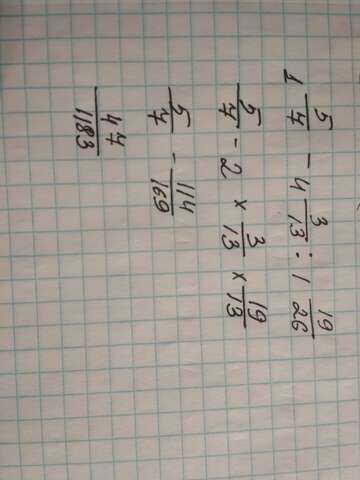 1 5/7 - 4 3/13 : 1 19/26
5/7 - 2 × 3/13 × 19/13
5/7 - 114/169
47/1183